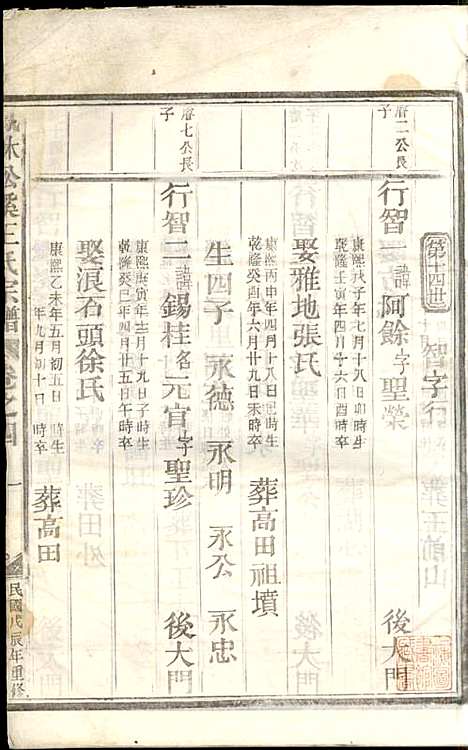 第十四世 智字行
層二公長子
行智一諱阿餘字聖榮 後大門
康熙戊子年七月十八日卯時生
乾隆壬寅年四月十六日酉時卒
娶雅地張氏
康熙丙申年四月十八日丑時生
乾隆癸酉年六月廿九日未時卒
葬高田祖墳
生四子 永德 永明 永公 永忠
層七公長子
行智二諱錫桂名元官字聖珍 後大門
康熙庚寅年十二月十九日子時生
乾隆癸巳年四月廿五日午時卒
娶浪石頭徐氏
康熙乙未年五月初五日 時生
年九月初十日 時卒
葬高田
林松溪王氏宗譜 卷之四 一 民國戊辰年重修